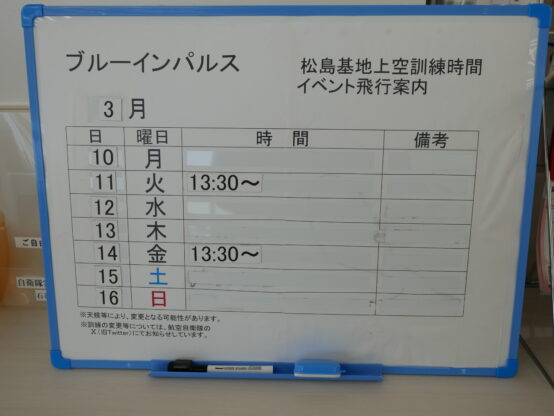 ブルーインパルス
松島基地上空訓練時間
イベント飛行案内
3 月
日 曜日 時 間 備考
10 月
11 火 13:30～
12 水
13 木
14 金 13:30～
15 土
16 日
※天候等により、変更となる可能性があります。
※訓練の変更等については、航空自衛隊の
X（旧Twitter）にてお知らせしています。
自衛隊